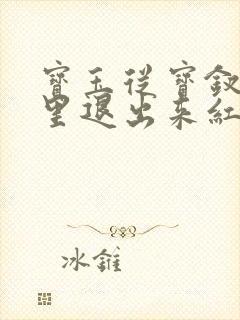 寶玉從寶釵
里退出來紅
冰錐